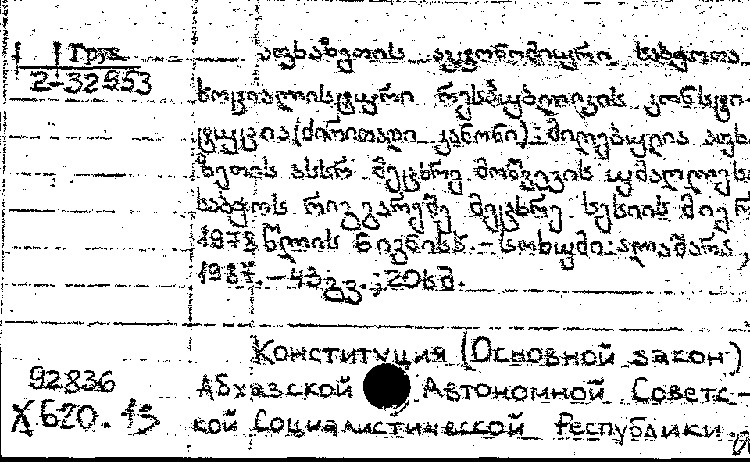 Груз
2-32953
აფხაზეთის ავტონომიური საბჭოთა
სოციალისტური რესპუბლიკის კონსტი-
ტუცია (ძირითადი კანონი): მიღებულია აფხა
ზეთის ასსრ მეცხრე მოწვევის უმაღლეს
საბჭოს რიგგარეშე მეცხრე სესიის მიერ
1978 წლის 6 ივნისს. – სოხუმი: ალაშარა,
1987. – 43 გვ.; 20 სმ.
Конституция (Основной закон)
92836 Абхазской Автономной Советс-
X620.13 кой Социалистической Республики.